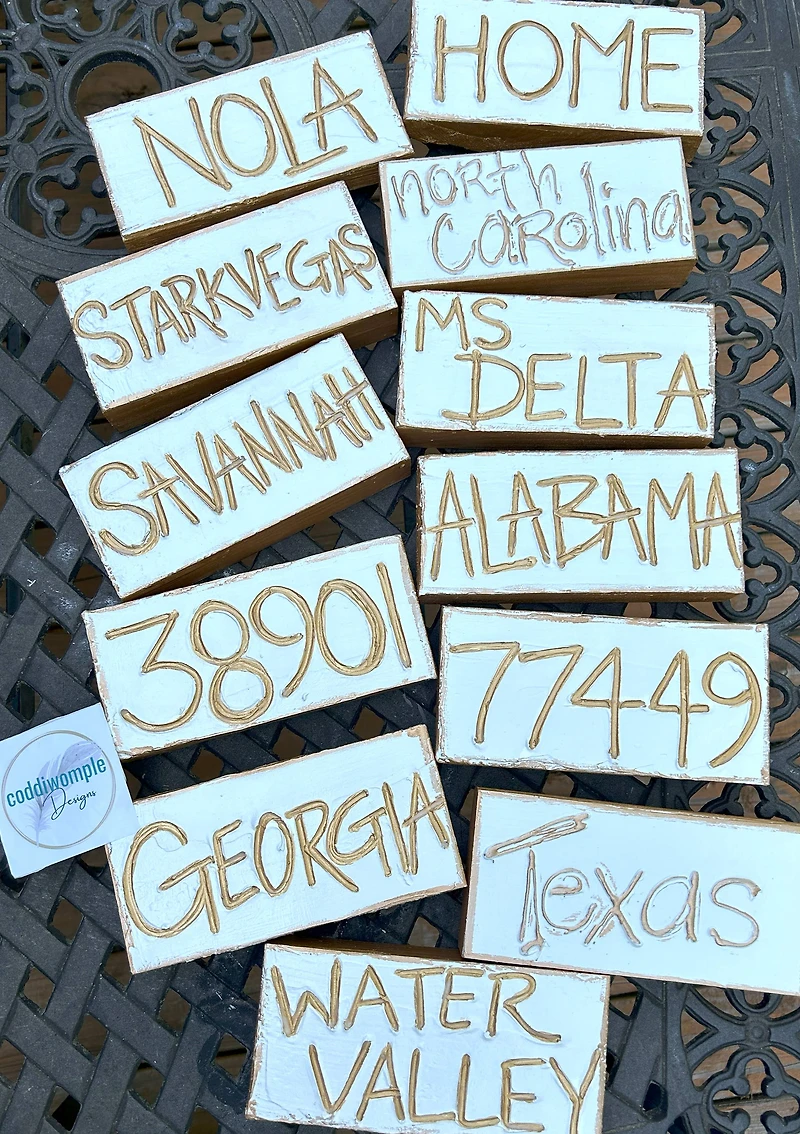 HOME
NOLA
north
Carolina
STARKVEGAS
MS
DELTA
SAVANNAH
ALABAMA
38901
77449
coddiwomple
Designs
GEORGIA
Texas
WATER
VALLEY